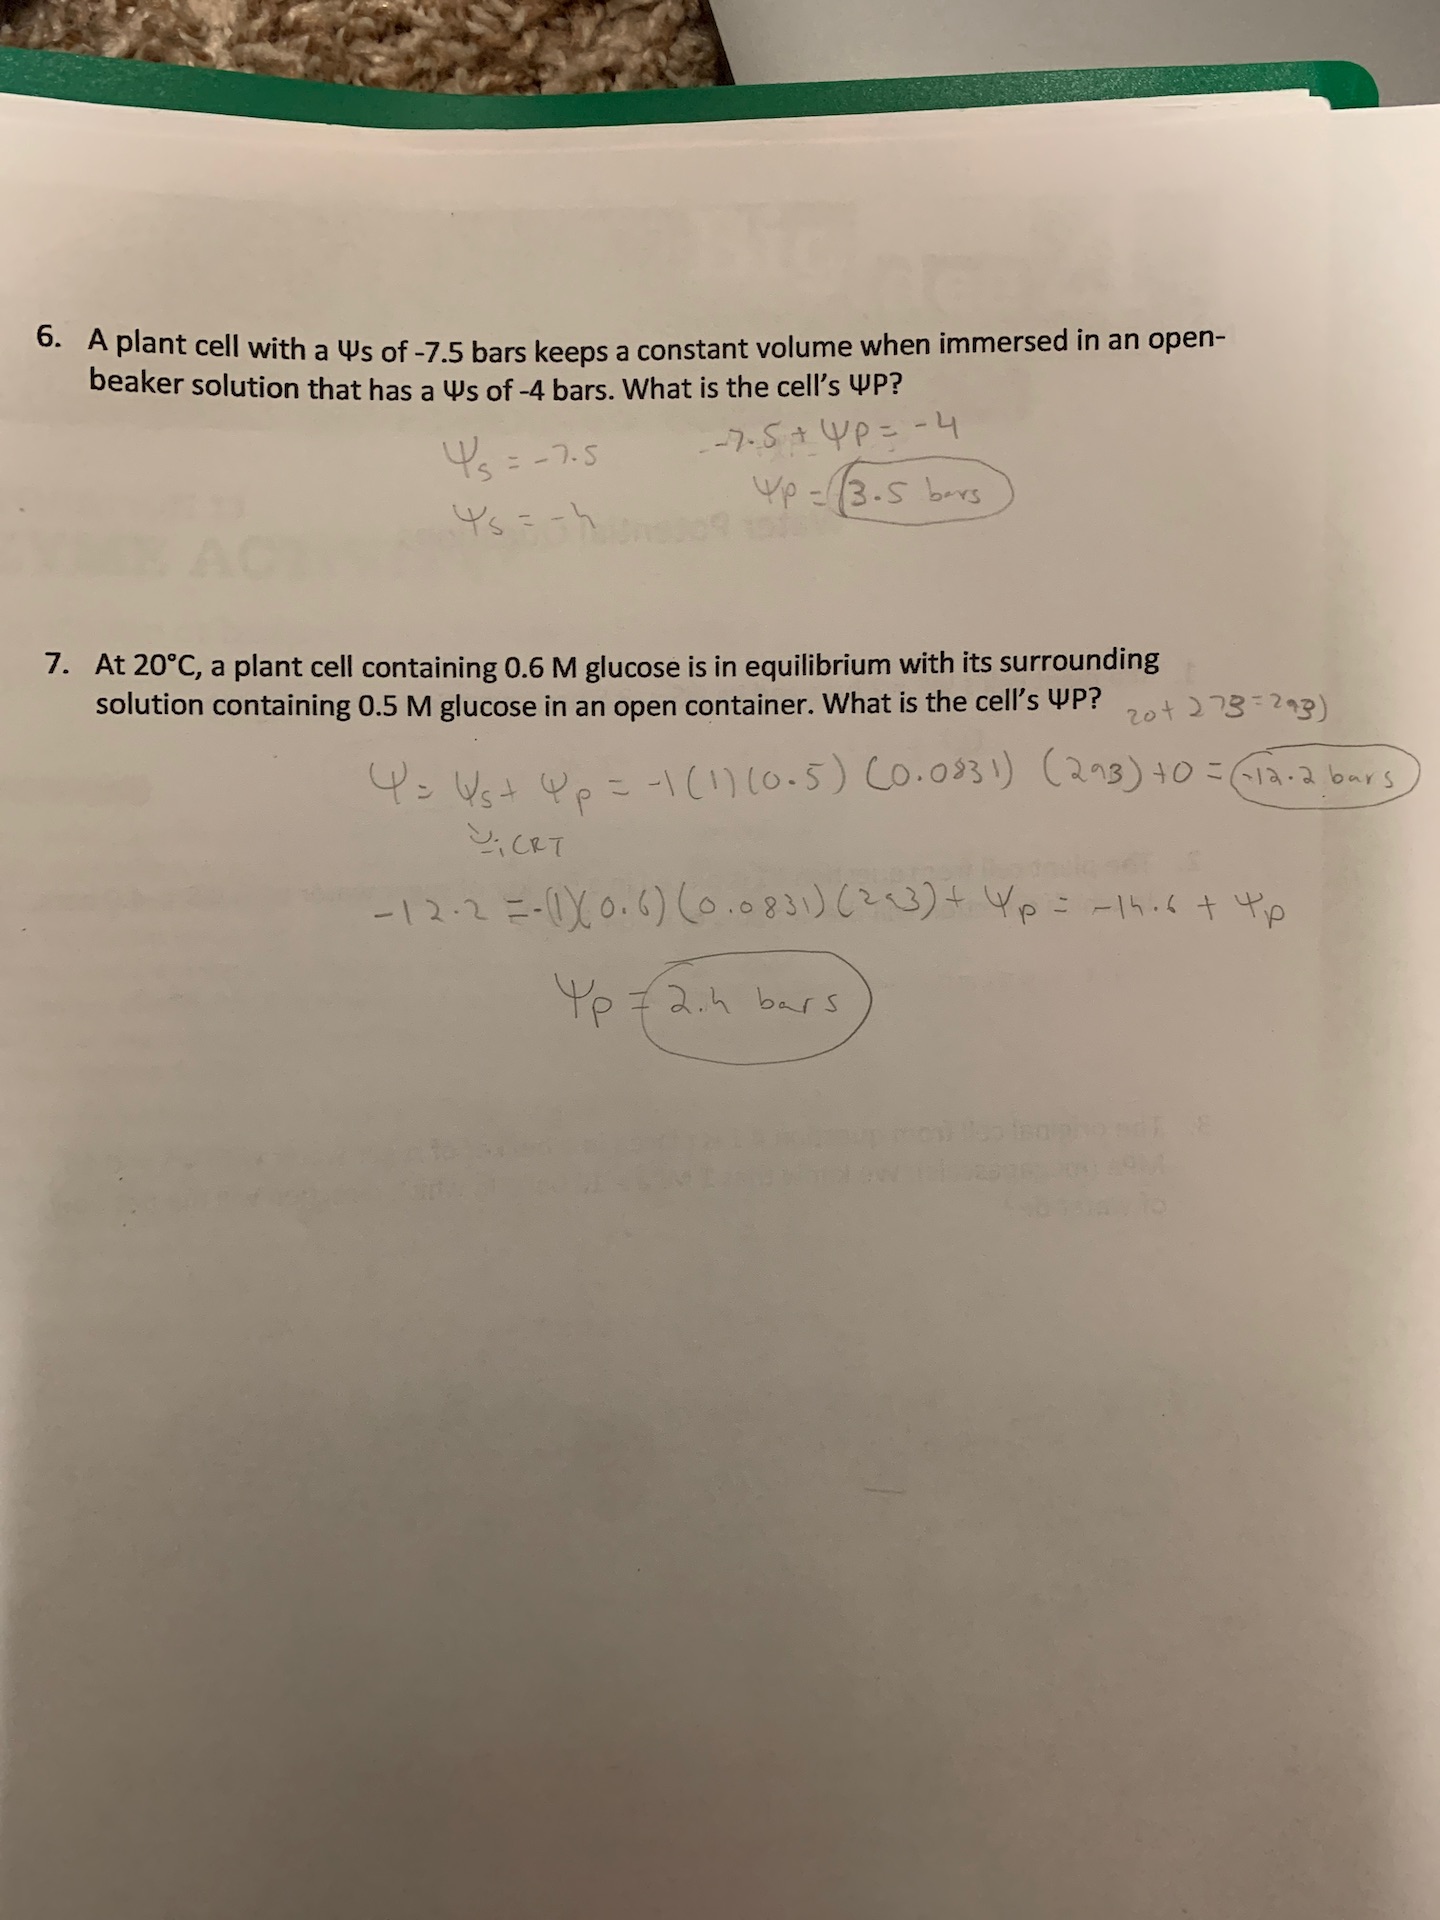 6. A plant cell with a Ψs of -7.5 bars keeps a constant volume when immersed in an open-
beaker solution that has a Ψs of -4 bars. What is the cell's ΨP?
Ψs = -7.5
-7.5 + Ψp = -4
Ψp = 3.5 bars
Ψs = -4
7. At 20°C, a plant cell containing 0.6 M glucose is in equilibrium with its surrounding
solution containing 0.5 M glucose in an open container. What is the cell's ΨP?
20+273=293)
Ψ = Ψs + Ψp = -1(1)(0.5)(0.0831)(293)+0 = -12.2 bars
iCRT
-12.2 = -(1)(0.6)(0.0831)(293)+ Ψp = -14.6 + Ψp
Ψp = 2.4 bars